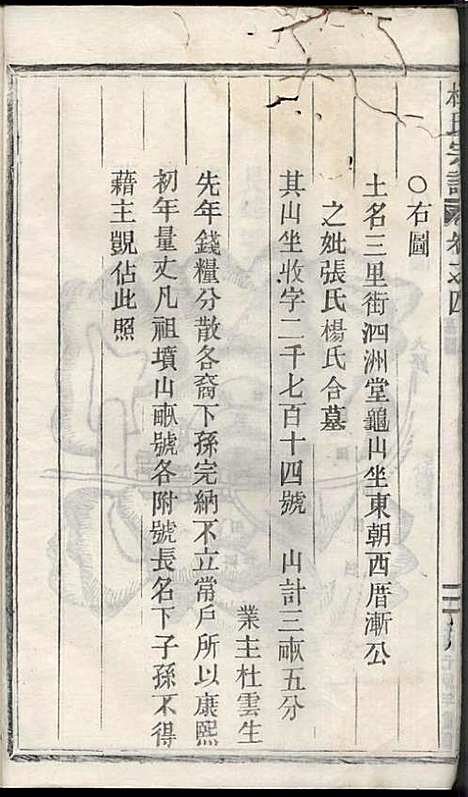 杜氏宗譜 卷之四
○右圖
土名三里街泗洲堂龜山坐東朝西厝漸公
之妣張氏楊氏合墓
其山坐收字二千七百十四號 山計三畝五分
業主杜雲生
先年錢糧分散各裔下孫完納不立常戶所以康熙
初年量丈凡祖墳山畝號各附號長名下子孫不得
藉主覬佔此照